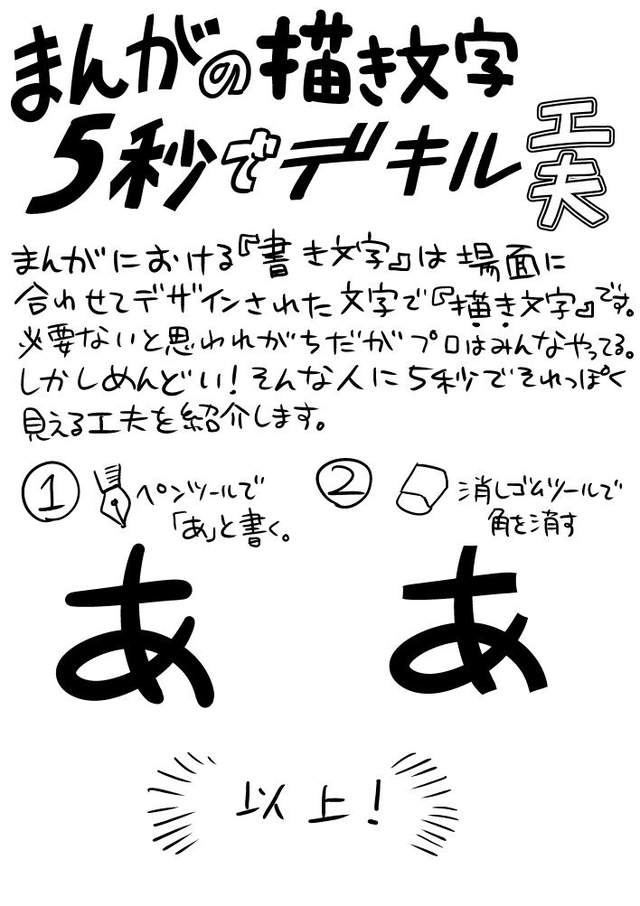 まんがの描き文字
5秒でデキル工夫
まんがにおける『書き文字』は場面に
合わせてデザインされた文字で『描き文字』です。
必要ないと思われがちだがプロはみんなやってる。
しかしめんどい！そんな人に5秒でそれっぽく
見える工夫を紹介します。
① ペンツールで
「あ」と書く。
② 消しゴムツールで
角を消す
あ
あ
以上！